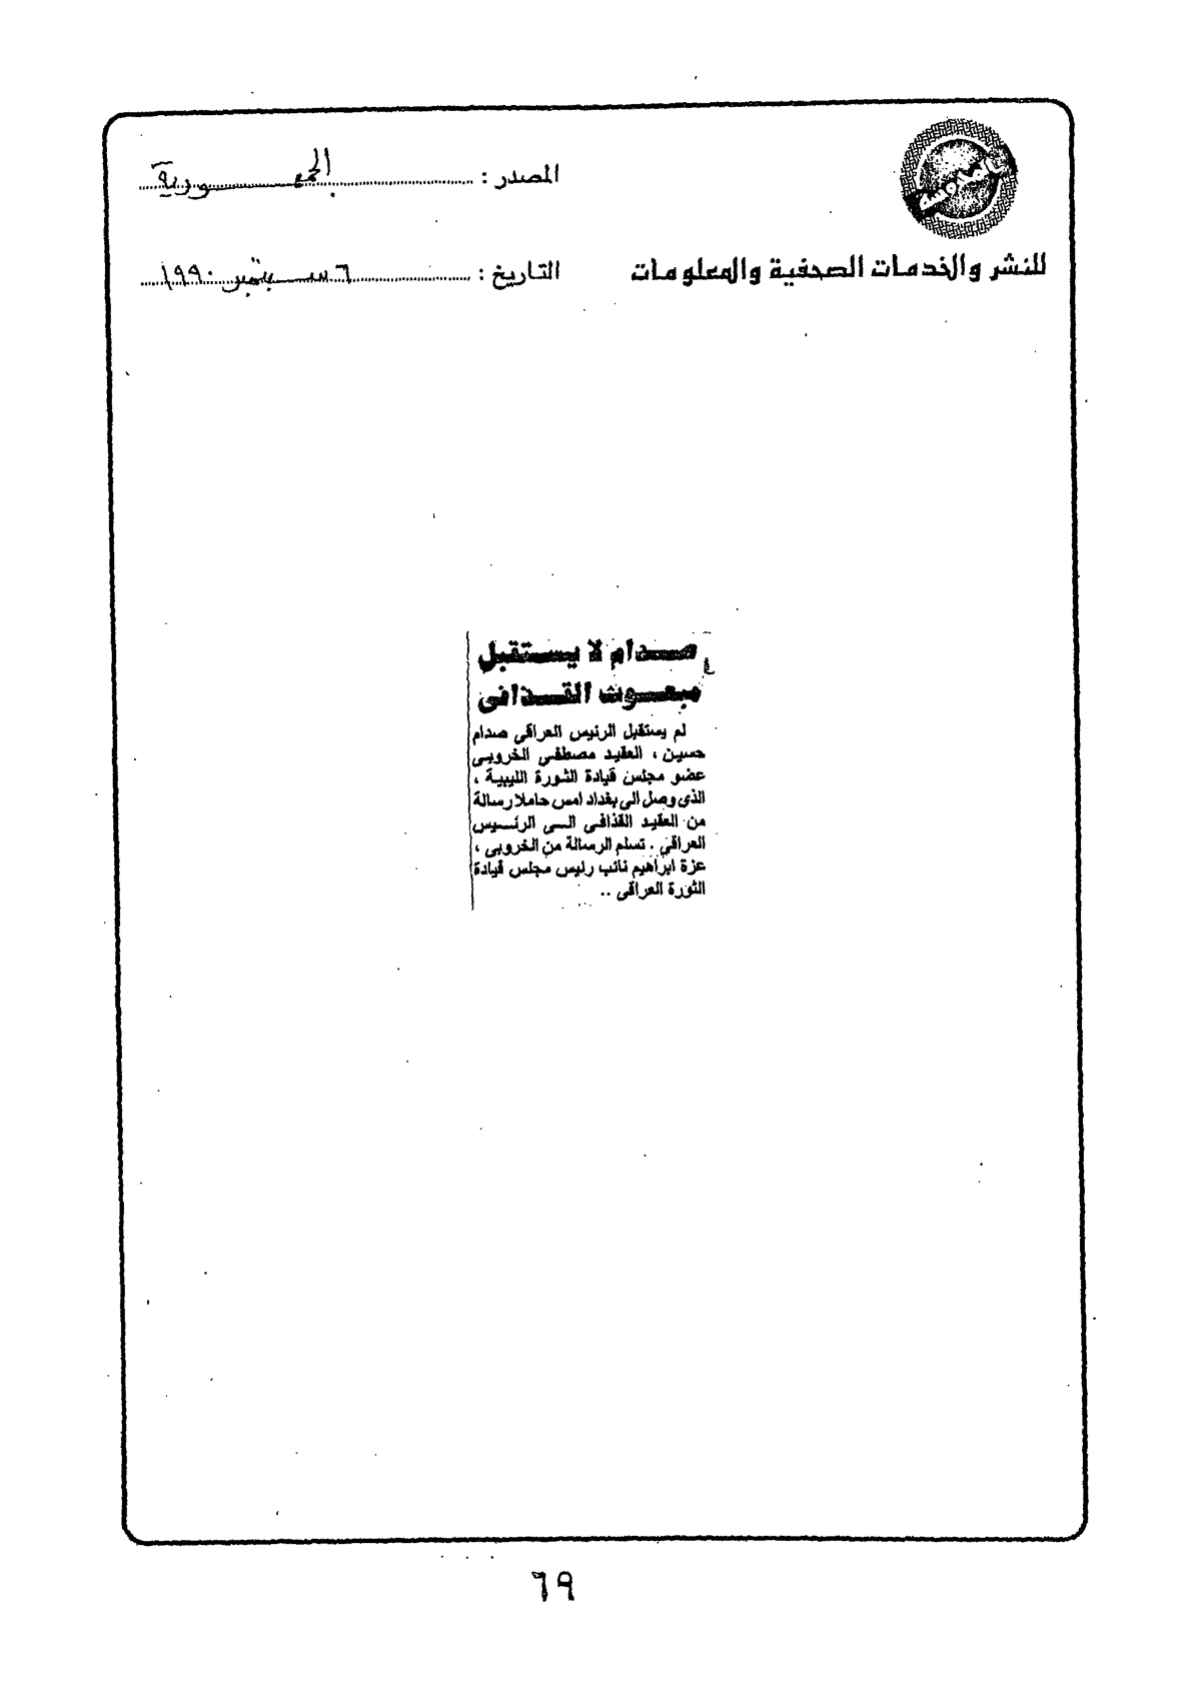 المصدر : الجمهورية
للنشر والخدمات الصحفية والمعلومات
التاريخ : ٦ سبتمبر ١٩٩٠
صدام لا يستقبل
مبعوث القذافى
لم يستقبل الرئيس العراقى صدام
حسين ، العقيد مصطفى الخروبى
عضو مجلس قيادة الثورة الليبية ،
الذى وصل الى بغداد امس حاملا رسالة
من العقيد القذافى الى الرئيس
العراقى . تسلم الرسالة من الخروبى ،
عزة ابراهيم نائب رئيس مجلس قيادة
الثورة العراقى ..
٦٩